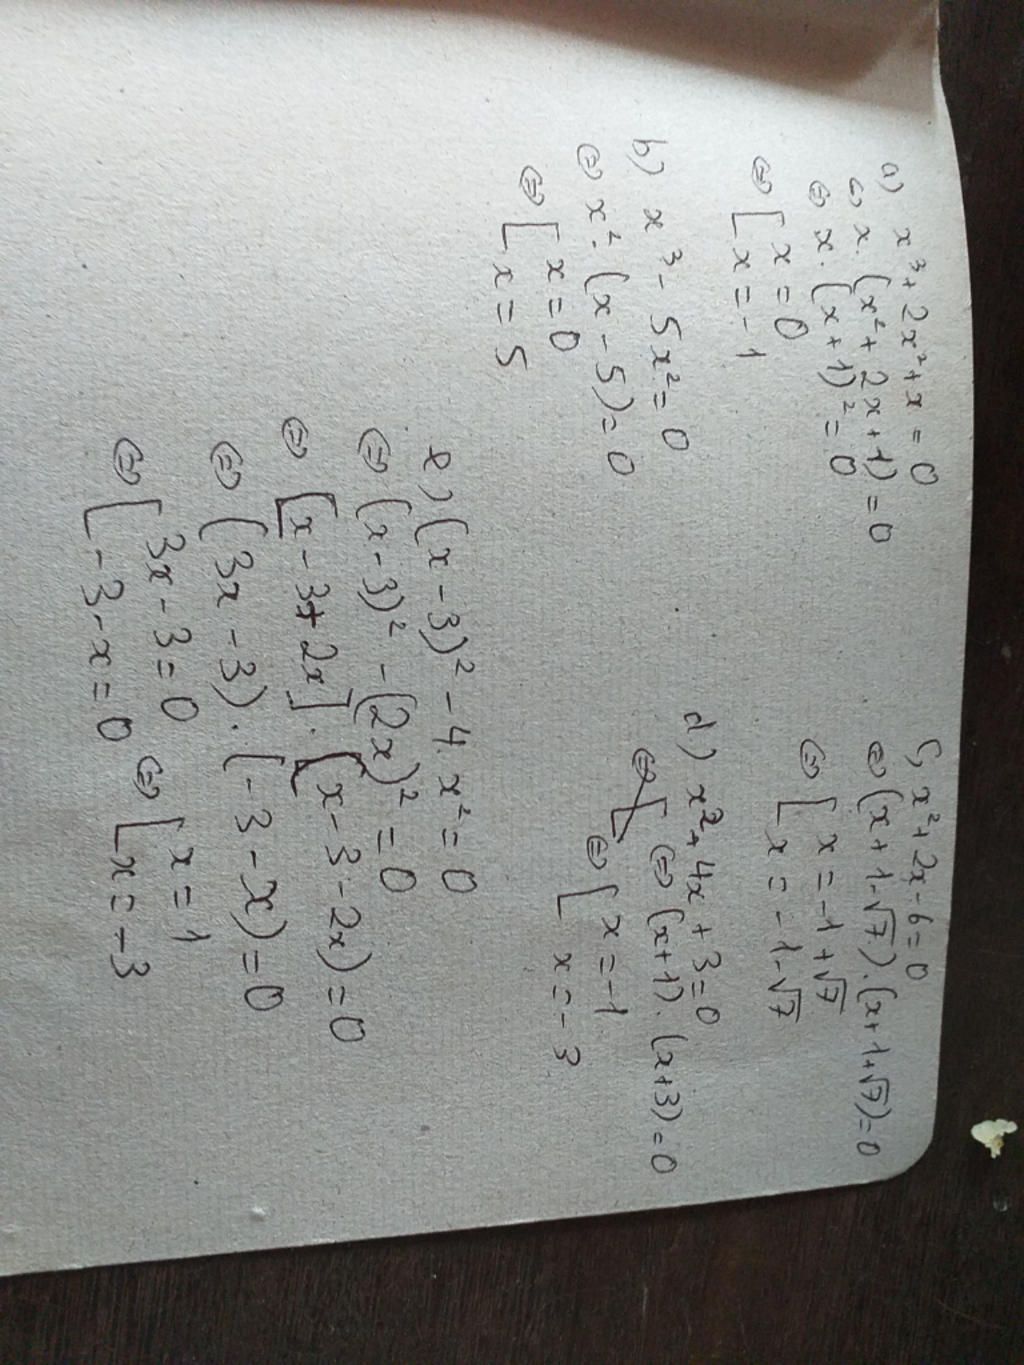 a) x³ + 2x² + x = 0
⇔ x. (x² + 2x + 1) = 0
⇔ x. (x + 1)² = 0
⇔ [ x = 0
x = -1
b) x³ - 5x² = 0
⇔ x². (x - 5) = 0
⇔ [ x = 0
x = 5
c) x² + 2x - 6 = 0
⇔ (x + 1 - √7). (x + 1 + √7) = 0
⇔ [ x = -1 + √7
x = -1 - √7
d) x² + 4x + 3 = 0
⇔ (x+1). (x+3) = 0
⇔ [ x = -1
x = -3
e) (x - 3)² - 4x² = 0
⇔ (x - 3)² - (2x)² = 0
⇔ [x - 3 + 2x]. (x - 3 - 2x) = 0
⇔ (3x - 3). (-3 - x) = 0
⇔ [ 3x - 3 = 0 ⇔ [ x = 1
-3 - x = 0 x = -3